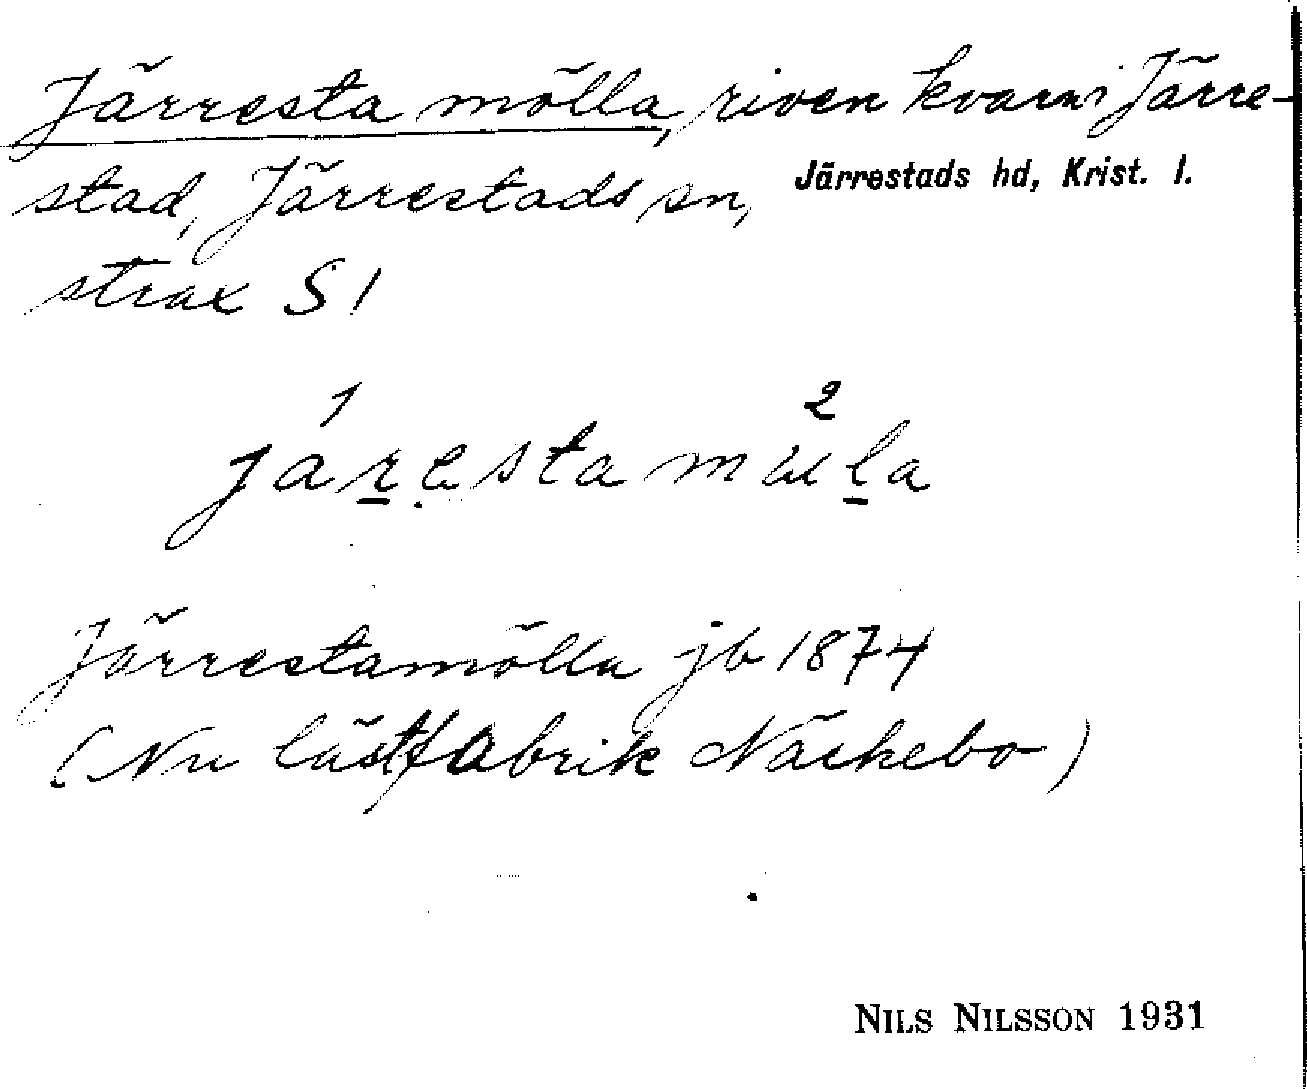 Järresta mölla, riven kvarn i Järre-
stad, Järrestads sn, Järrestads hd, Krist. l.
strax S!
1 2
jaṟestamɯḻa
Järrestamölla jb 1874
(Nu lästfabrik Näckebo)
NILS NILSSON 1931